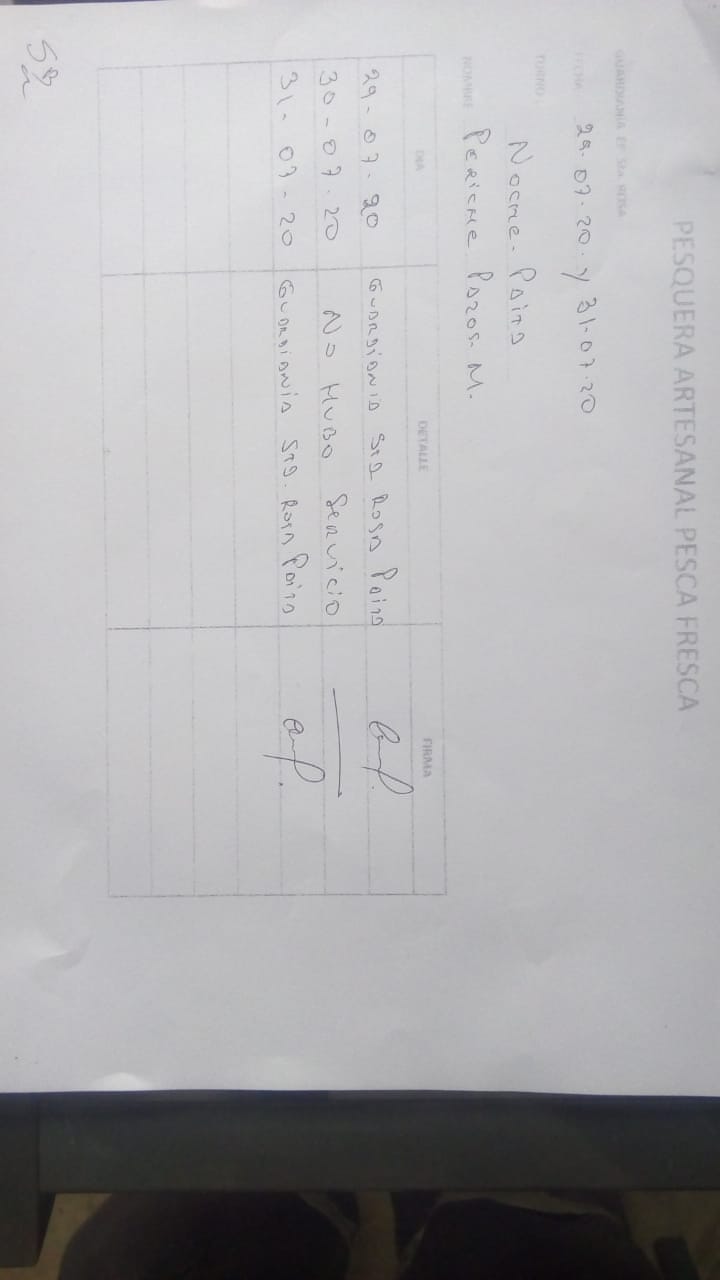 PESQUERA ARTESANAL PESCA FRESCA
GUARDIANIA EP Sta ROSA
FECHA 29-07-20. y 31-07-20
TURNO: Noche- Paita
NOMBRE Periche Pazos M.
DIA DETALLE FIRMA
29-07-20 Guardiania Sta Rosa Paita
30-07-20 No HUBO Servicio
31-07-20 Guardiania Sta. Rosa Paita